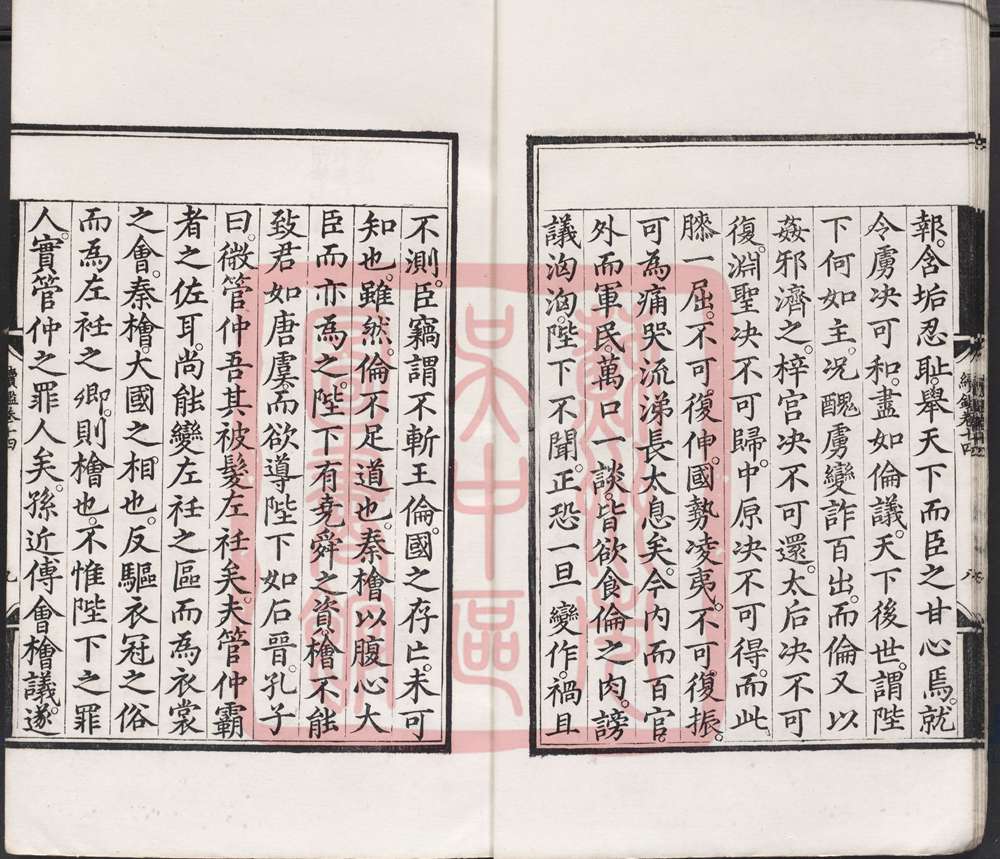 報。含垢忍恥。舉天下而臣之甘心焉。就
令虜决可和。盡如倫議。天下後世。謂陛
下何如主。况醜虜變詐百出。而倫又以
姦邪濟之。梓宮决不可還。太后决不可
復。淵聖决不可歸。中原决不可得。而此
膝一屈。不可復伸。國勢凌夷。不可復振。
可為痛哭流涕長太息矣。今内而百官。
外而軍民。萬口一談。皆欲食倫之肉。謗
議洶洶。陛下不聞。正恐一旦變作。禍且
不測。臣竊謂不斬王倫。國之存亡。未可
知也。雖然。倫不足道也。秦檜以腹心大
臣而亦為之。陛下有堯舜之資。檜不能
致君如唐虞。而欲導陛下如石晉。孔子
曰。微管仲吾其被髮左衽矣。夫管仲霸
者之佐耳。尚能變左衽之區而為衣裳
之會。秦檜。大國之相也。反驅衣冠之俗
而為左衽之卿。則檜也。不惟陛下之罪
人。實管仲之罪人矣。孫近傅會檜議。遂
續鑑卷十四
九
蘇州市
吴中區
圖書館